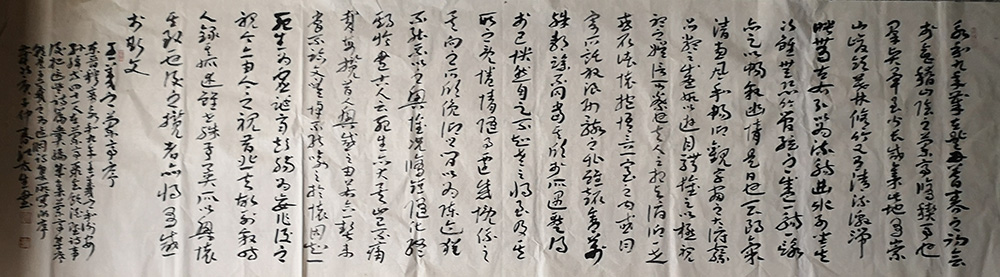 永和九年歲在癸丑暮春之初會
於會稽山陰之蘭亭修禊事也
羣賢畢至少長咸集此地有崇
山峻領茂林修竹又有清流激湍
映帶左右引以為流觴曲水列坐其
次雖無絲竹管絃之盛一觴一詠
亦足以暢敘幽情是日也天朗氣
清惠風和暢仰觀宇宙之大俯察
品類之盛所以遊目騁懷足以極視
聽之娛信可樂也夫人之相與俯仰一世
或取諸懷抱悟言一室之內或因
寄所託放浪形骸之外雖趣舍萬
殊靜躁不同當其欣於所遇暫得
於己快然自足不知老之將至及其
所之既倦情隨事遷感慨係之
矣向之所欣俛仰之間以為陳迹猶
不能不以之興懷況脩短隨化終
期於盡古人云死生亦大矣豈不痛
哉每攬昔人興感之由若合一契未
嘗不臨文嗟悼不能喻之於懷固知一
死生為虛誕齊彭殤為妄作後之
視今亦由今之視昔悲夫故列敘時
人錄其所述雖世殊事異所以興懷
其致一也後之攬者亦將有感
於斯文
王羲之蘭亭序
東晉穆帝永和九年王羲之和謝安
孫綽四十一人在蘭亭